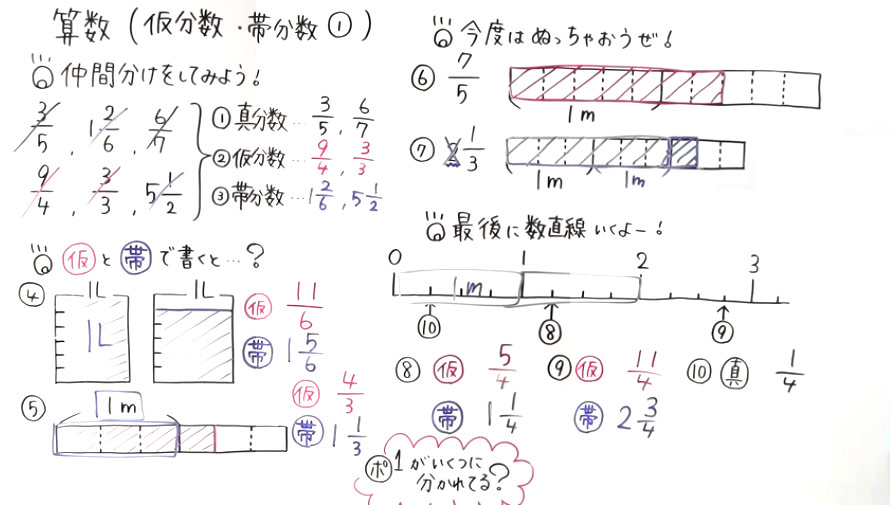 算数(仮分数・帯分数①)
仲間分けをしてみよう!
3/5, 1 2/6, 6/7
9/4, 3/3, 5 1/2
①真分数…3/5, 6/7
②仮分数…9/4, 3/3
③帯分数…1 2/6, 5 1/2
仮と帯で書くと…?
④
1L 1L
1L
仮 11/6
帯 1 5/6
⑤
1m
仮 4/3
帯 1 1/3
今度はぬっちゃおうぜ!
⑥ 7/5
1m
⑦ 2 1/3
1m 1m
最後に数直線いくよー!
0 1 2 3
1m
⑩ ⑧ ⑨
⑧ 仮 5/4
帯 1 1/4
⑨ 仮 11/4
帯 2 3/4
⑩ 真 1/4
ポ 1がいくつに
分かれてる?